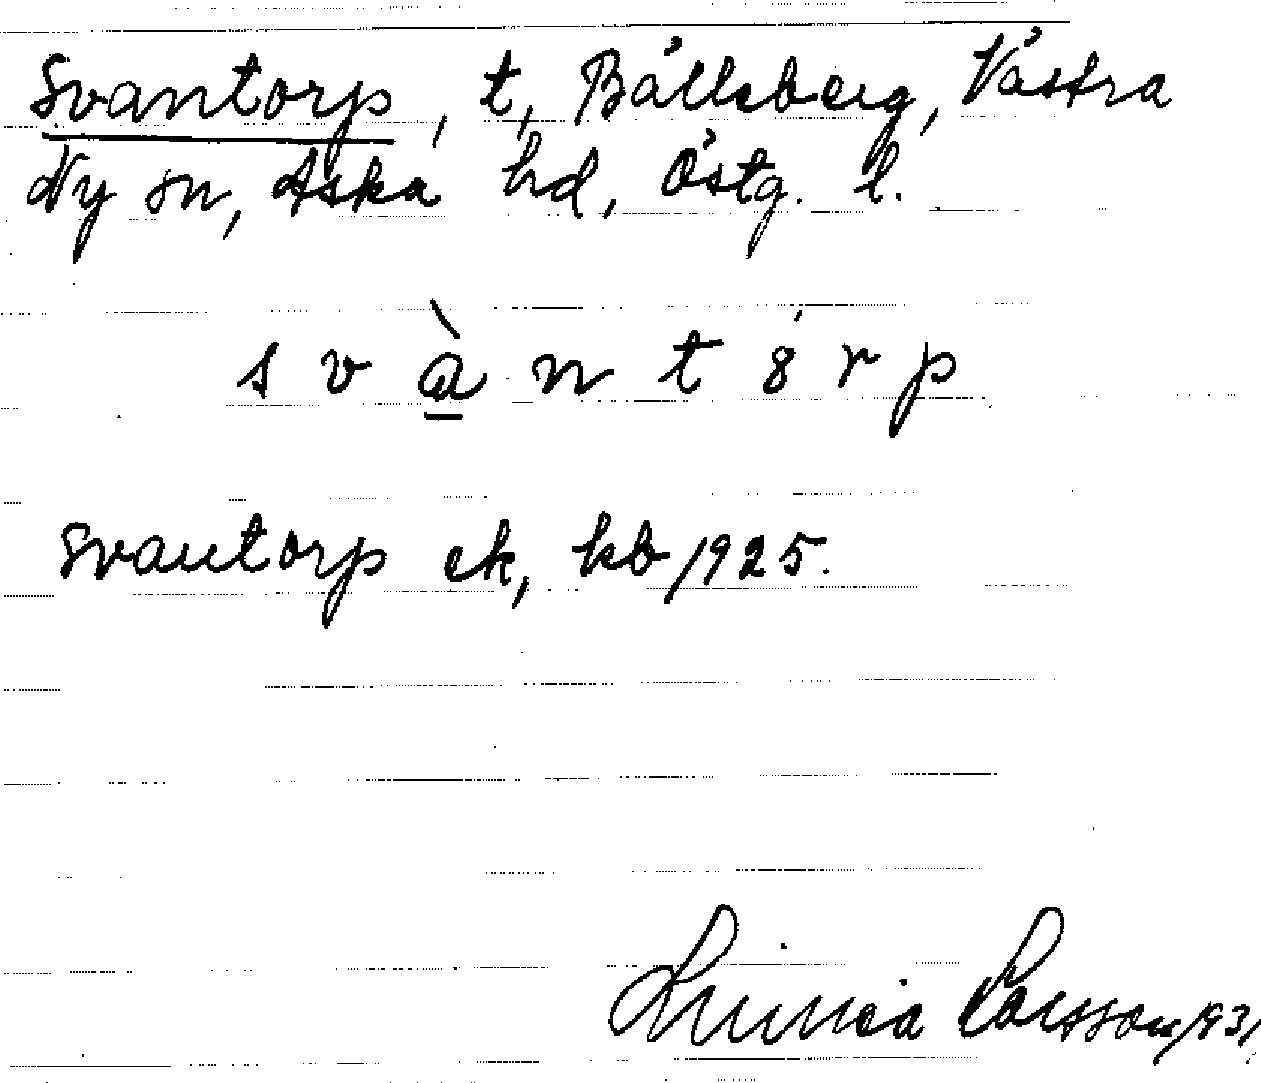 Svantorp, t, Bållsberg, Västra
Ny sn, Aska hd, Östg. l.
s v à n t ó r p
Svantorp ek, kb 1925.
Linnea Larsson 1931